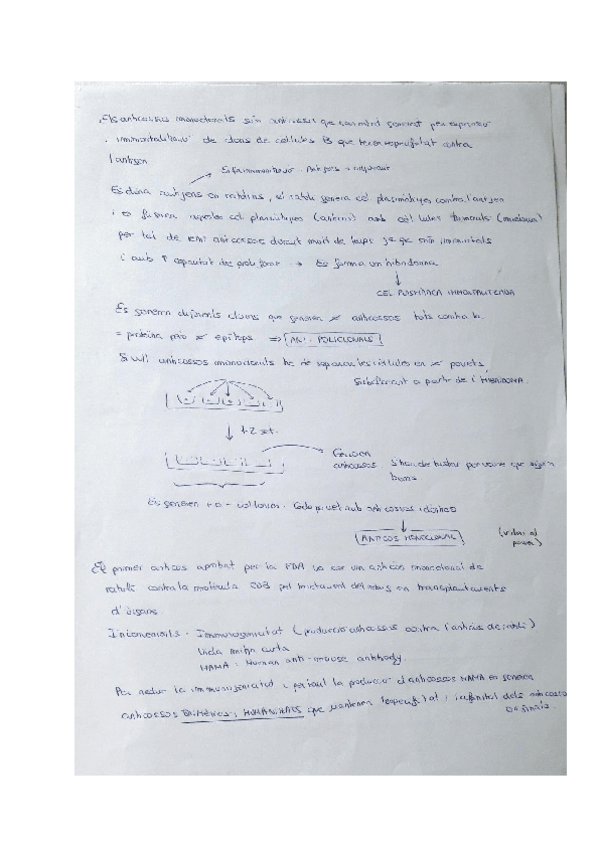 Els anticossos monoclonals són anticossos que generat per expressió
immortalització de clons de cèl·lules B que tenen especificitat contra
l'antigen
Es dona antígens en ratolins, el ratolí genera cel plasmàtiques contra l'antigen
i es fusiona aquestes cel plasmàtiques amb cèl·lules tumorals (mieloma)
per tal de tenir anticossos durant molt de temps ja que són immortals
i amb ↑ capacitat de proliferar → Es forma un hibridoma
↓
CEL PLASMÀTICA IMMORTALITZADA
Es generen diferents clons que generen ≠ anticossos tots contra la
= proteïna però ≠ epítops ⇒ ANT. POLICLONALS
Si vull anticossos monoclonals he de separar les cèl·lules en ≠ pouets
a partir de l'HIBRIDOMA.
↓ 1-2 set.
Generen
anticossos S'han de testar per veure que siguin
bons
Es generen + o - colònies. Cada pouet amb anticossos idèntics
↓
ANTICÒS MONOCLONAL
El primer anticòs aprobat per la FDA va ser un anticòs monoclonal de
ratolí contra la molècula pel tractament del rebuig en transplantaments
d'òrgans
Inconvenients: Immunogenicitat (producció anticossos contra l'anticòs de ratolí)
Vida mitja curta
HAMA: Human anti-mouse antibody.
Per reduir la immunogenicitat i per tant la producció d'anticossos HAMA es generen
anticossos QUIMÈRICS i HUMANITZATS que mantenen l'especificitat i l'afinitat dels anticossos